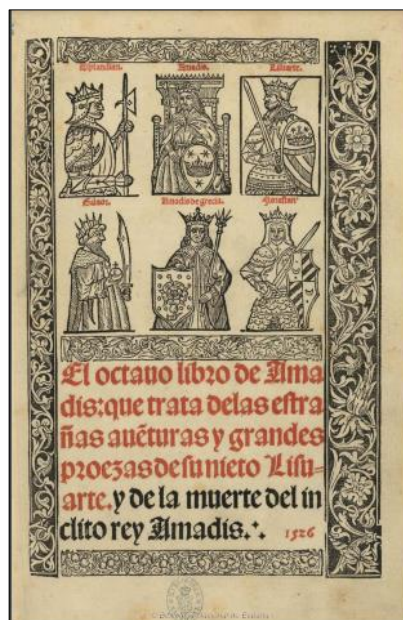 Esplandian. Amadis. Lisuarte.
Galaor. Amadis de grecia. Florestan
El octauo libro de Ama
dis: que trata delas estra
ñas auẽturas y grandes
proezas de su nieto Lisu-
arte. y de la muerte del in
clito rey Amadis.
1526